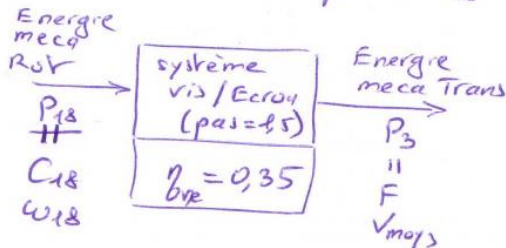 Energie
meca
Rot
P18
=
C18
ω18
système
vis/Ecrou
(pas=1,5)
ηve = 0,35
Energie
meca Trans
P3
=
F
Vmoy3